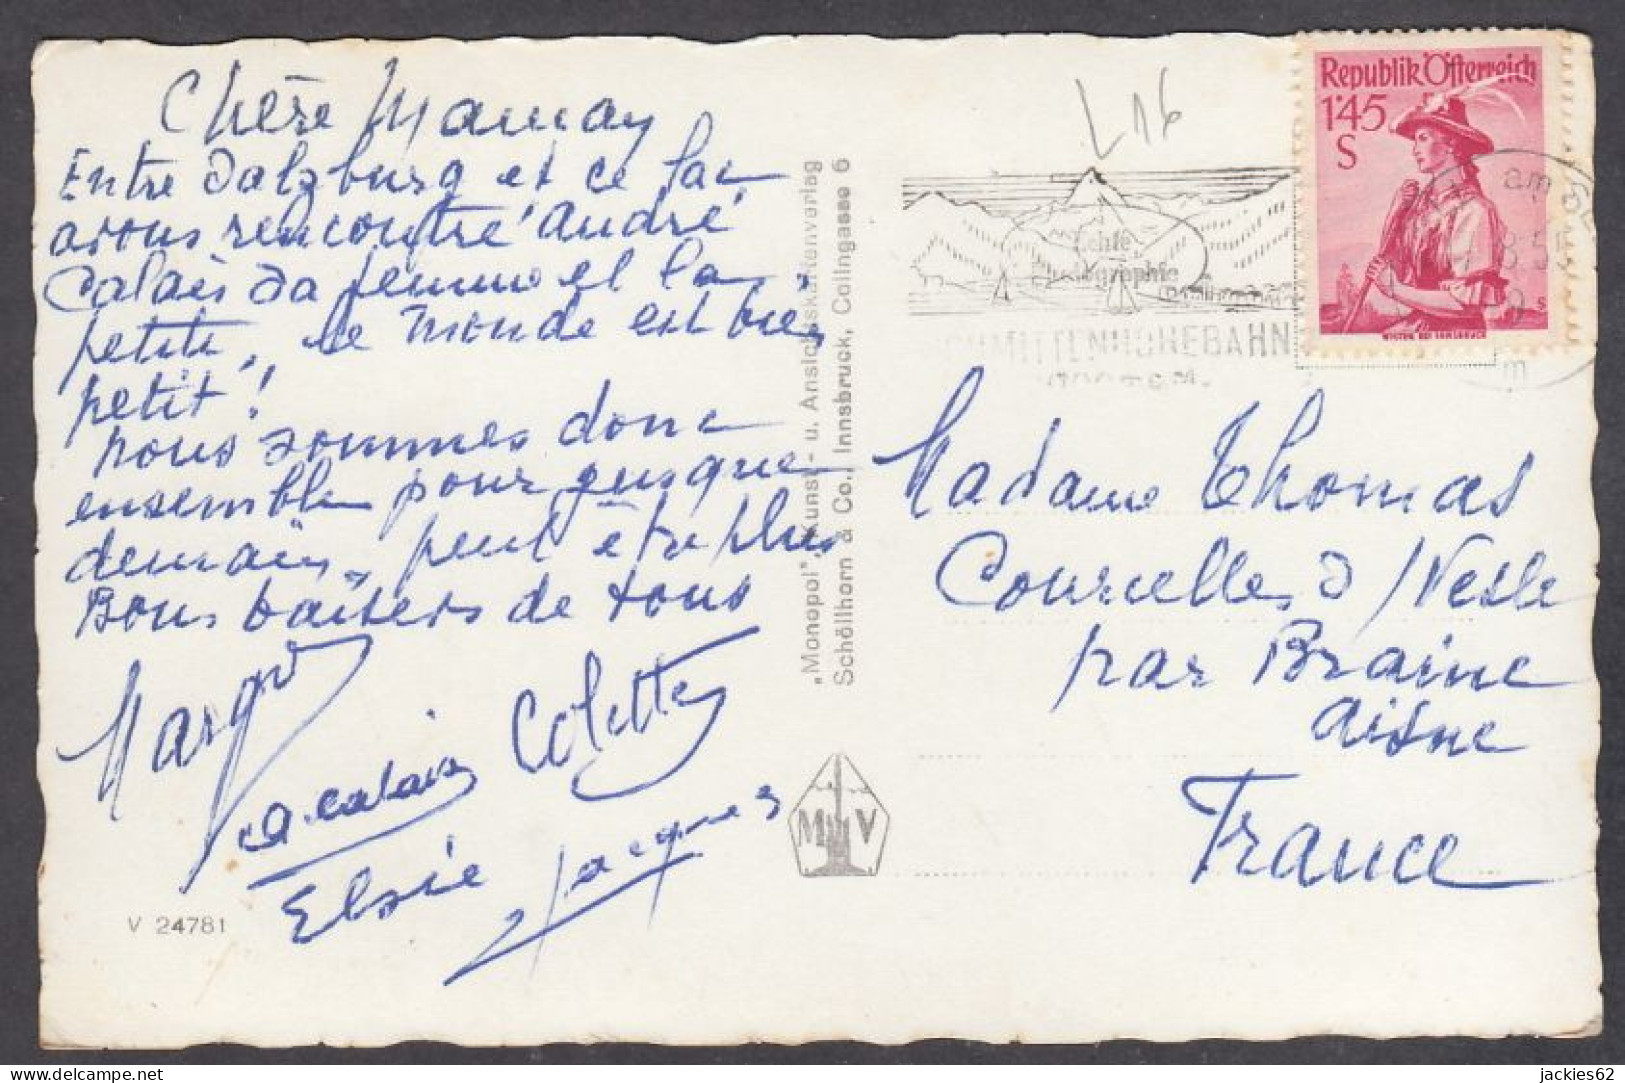 Chère Mamay
Entre Salzburg et ce lac
avons rencontré André
Calais Sa femme et la
petite, le monde est bien
petit!
nous sommes donc
ensemble pour jusque
demain, peut être plus
Bons baisers de tous
Margo
Colette
A. Calais
Elsie
Jacques
V 24781
„Monopol", Kunst- u. Ansichtskartenverlag
Schöllhorn & Co., Innsbruck, Colingasse 6
M V
L 16
Echte
Photographie
SCHMITTENHÖHEBAHN
Republik Österreich
1'45
S
am
Madame Thomas
Courcelles s/Vesle
par Braine
Aisne
France
jackies62